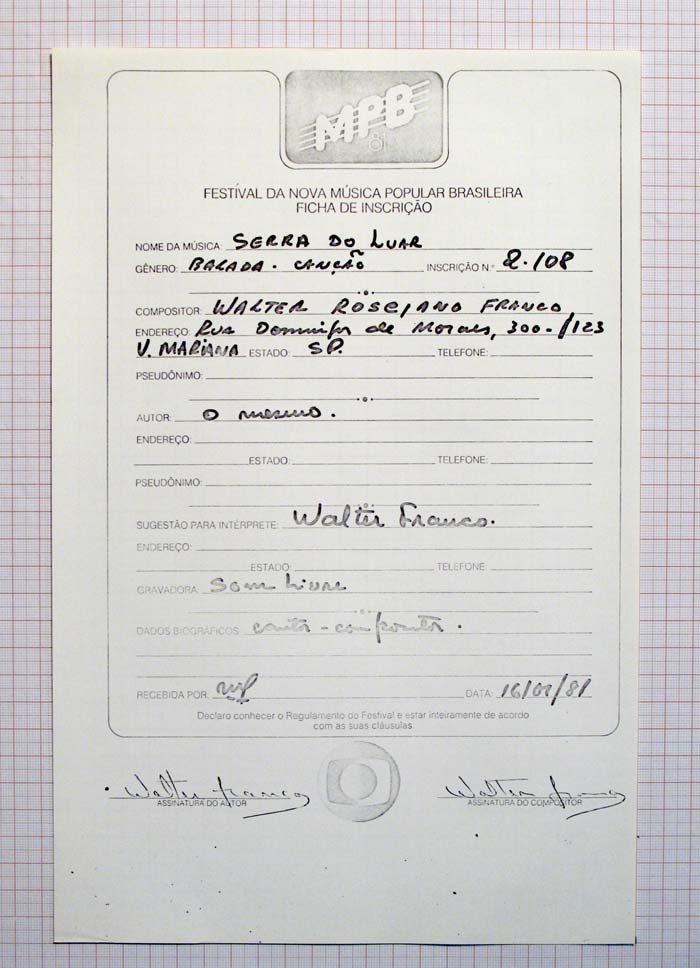 MPB
81
FESTIVAL DA NOVA MÚSICA POPULAR BRASILEIRA
FICHA DE INSCRIÇÃO
NOME DA MÚSICA: SERRA DO LUAR
GÊNERO: BALADA - CANÇÃO INSCRIÇÃO N.º 2.108
COMPOSITOR: WALTER ROSCIANO FRANCO
ENDEREÇO: RUA Domingos de Moraes, 300-/123
V. MARIANA ESTADO: SP. TELEFONE:
PSEUDÔNIMO:
AUTOR: O mesmo.
ENDEREÇO:
ESTADO: TELEFONE:
PSEUDÔNIMO:
SUGESTÃO PARA INTÉRPRETE: Walter Franco.
ENDEREÇO:
ESTADO: TELEFONE:
GRAVADORA: Som Livre
DADOS BIOGRÁFICOS: cantor - compositor.
RECEBIDA POR: DATA: 16/01/81
Declaro conhecer o Regulamento do Festival e estar inteiramente de acordo
com as suas cláusulas.
Walter Franco Walter Franco
ASSINATURA DO AUTOR ASSINATURA DO COMPOSITOR